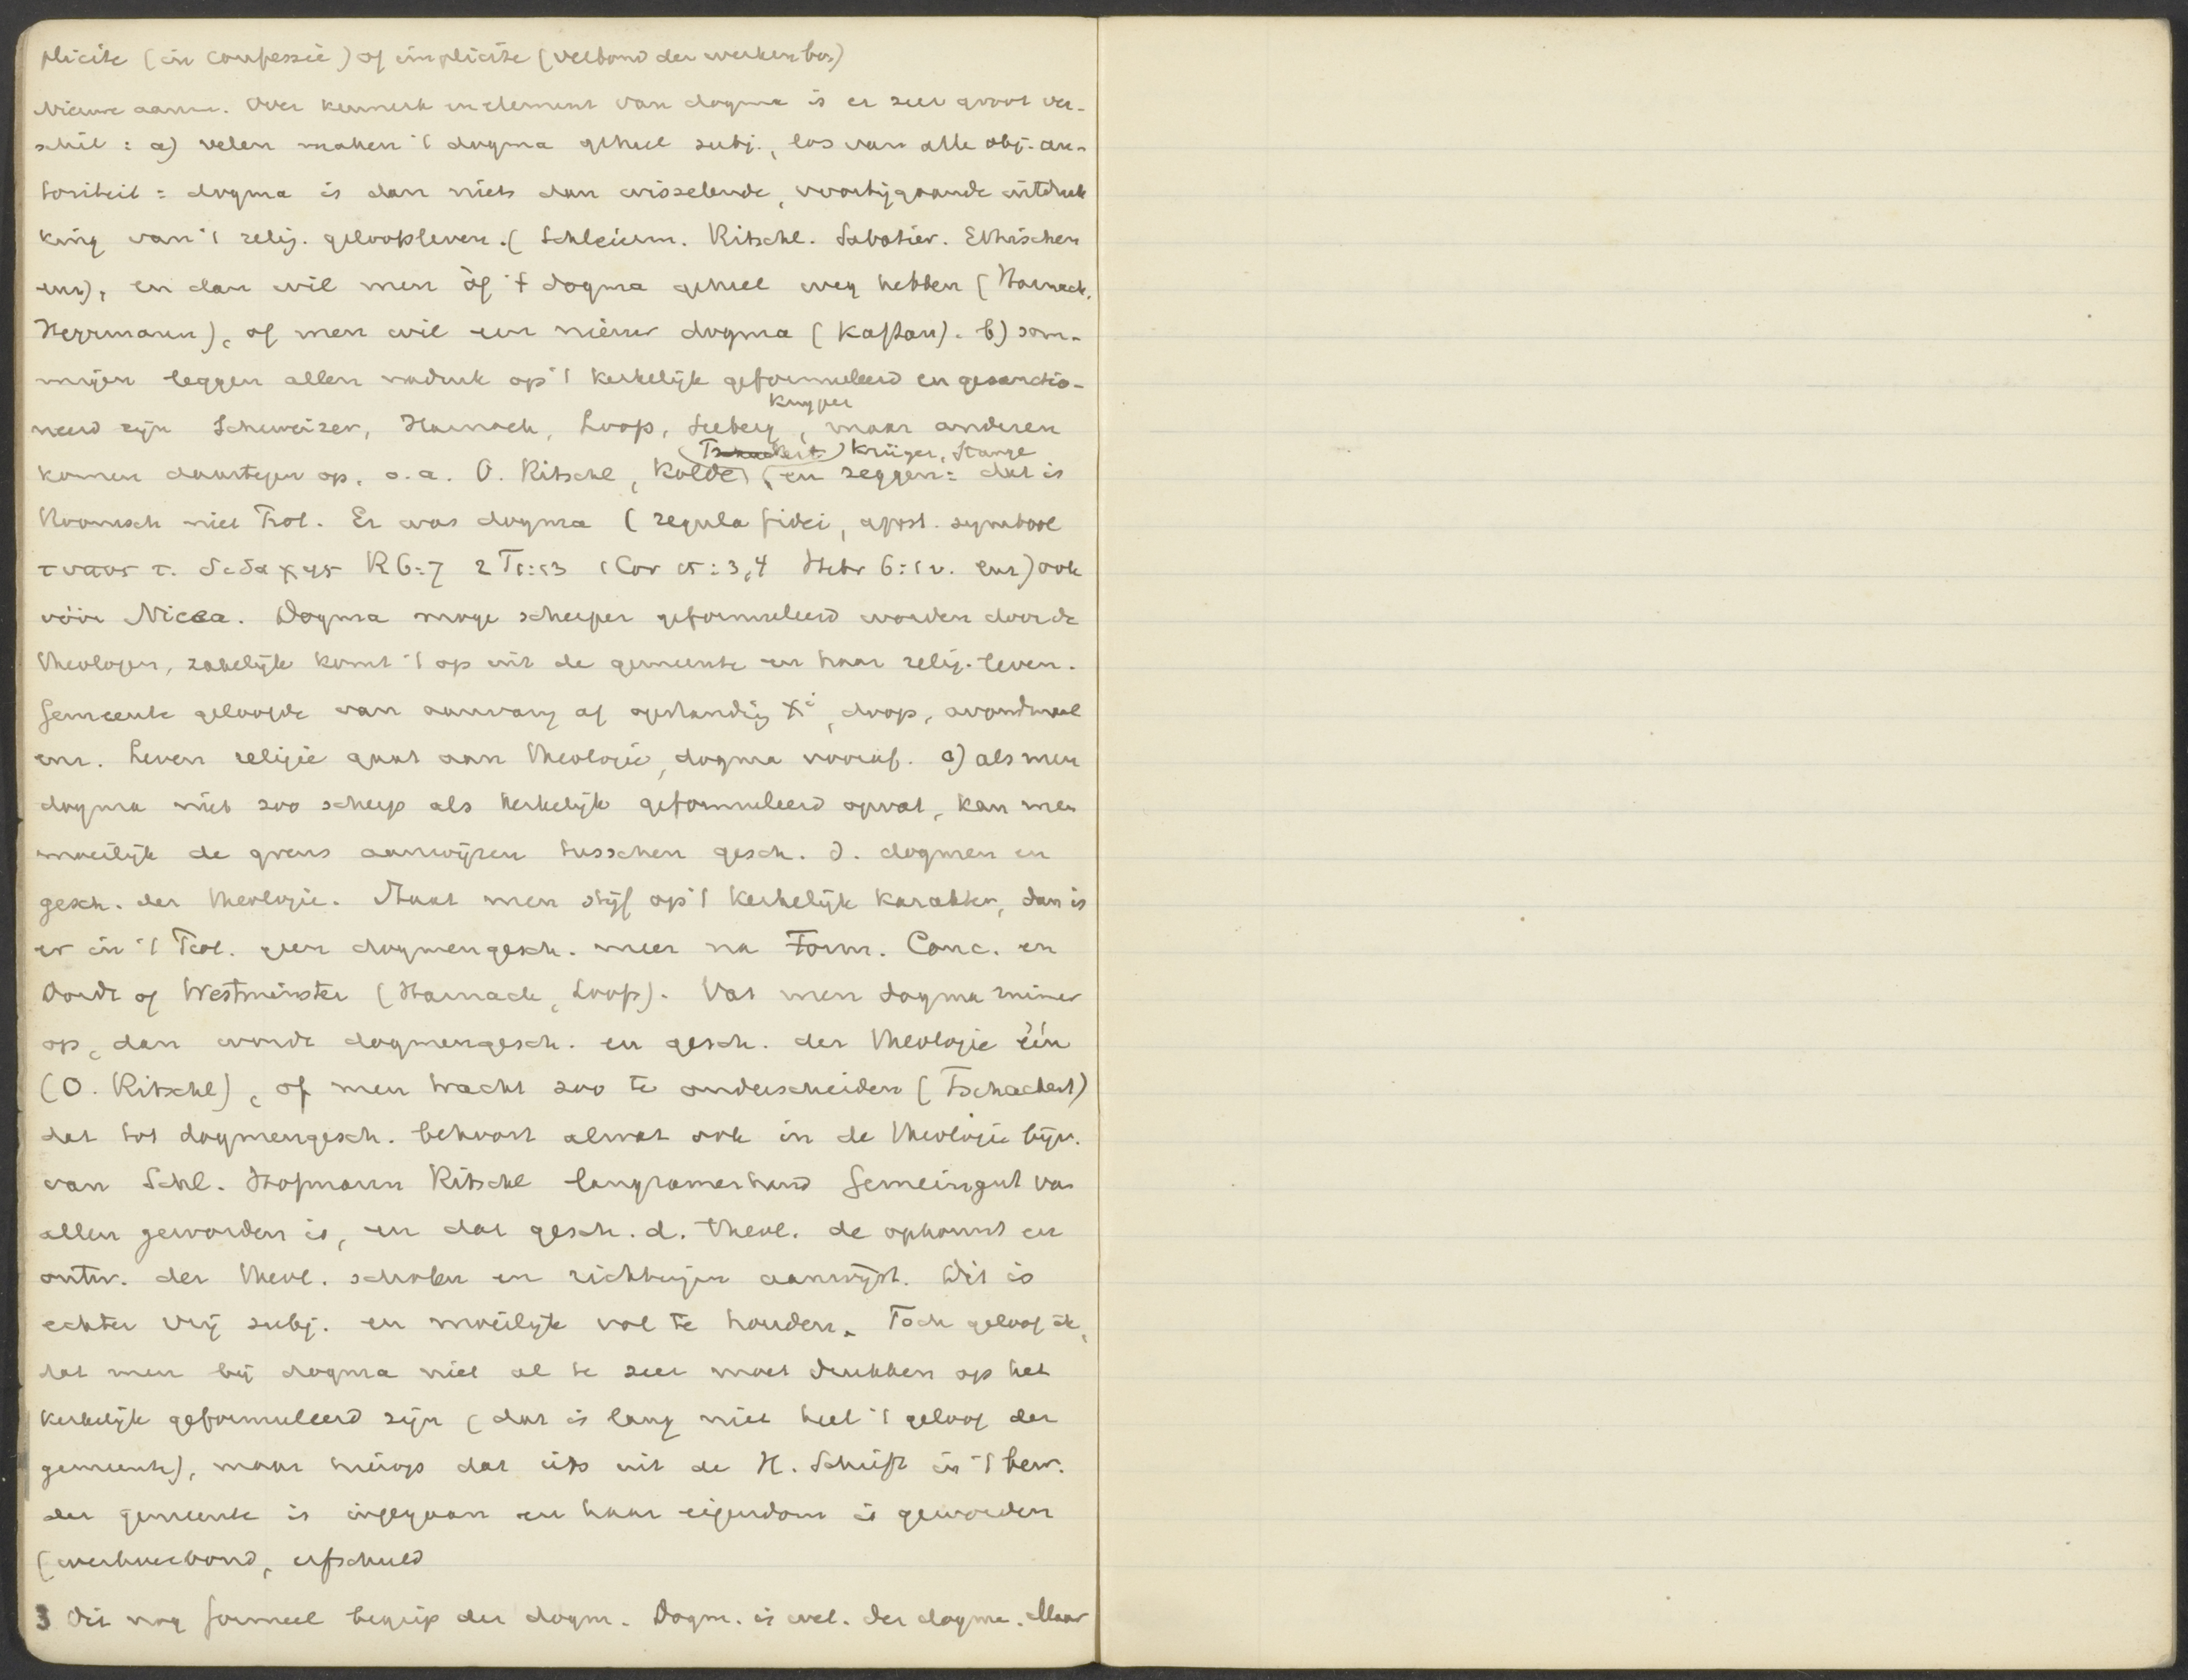 plicite (in confessie) of implicite (verbond der werken bv)
Nieuwe aanm. Over kenmerk en element van dogma is er zeer groot ver-
schil: a) velen maken 't dogma geheel subj., los van alle obj. au-
toriteit = dogma is dan niets dan wisselende, voorbijgaande uitdruk
king van 't relig. geloofsleven. (Schleierm. Ritschl. Sabatier. Ethischen
enz), en dan wil men òf 't dogma geheel weg hebben (Harnack,
Herrmann), of men wil een nieuw dogma (Kaftan). b) som-
migen leggen allen nadruk op 't kerkelijk geformuleerd en gesanctio-
Kuyper
neerd zijn Schweizer, Harnack, Loofs, Seeberg, maar anderen
(Tschackert) Krüger, Stange
komen daartegen op, o.a. O. Ritschl, Kolde, en zeggen: dat is
Roomsch niet Prot. Er was dogma (regula fidei, apost. symbool
τυπος τ. διδαχης R 6:7 2 T 1:13 1 Cor 15:3,4 Hebr 6:1 v. enz) ook
vóór Nicea. Dogma moge scherper geformuleerd worden door de
theologen, zakelijk komt 't op uit de gemeente en haar relig. leven.
Gemeente geloofde van aanvang af opstanding Xi, doop, avondmaal
enz. Leven religie gaat aan theologie, dogma vooraf. c) als men
dogma niet zoo scherp als kerkelijk geformuleerd opvat, kan men
moeilijk de grens aanwijzen tusschen gesch. d. dogmen en
gesch. der theologie. Staat men stijf op 't kerkelijk karakter, dan is
er in 't Prot. geen dogmengesch. meer na Form. Conc. en
Dordt of Westminster (Harnack, Loofs). Vat men dogma ruimer
op, dan wordt dogmengesch. en gesch. der theologie één
(O. Ritschl), of men tracht zoo te onderscheiden (Tschackert)
dat tot dogmengesch. behoort alwat ook in de theologie bijv.
van Schl. Hofmann Ritschl langzamerhand Gemeingut van
allen geworden is, en dat gesch. d. theol. de opkomst en
ontw. der theol. scholen en richtingen aanwijst. Dit is
echter vrij subj. en moeilijk vol te houden. Toch geloof ik,
dat men bij dogma niet al te zeer moet drukken op het
kerkelijk geformuleerd zijn (dat is lang niet heel 't geloof der
gemeente), maar hierop dat iets uit de H. Schrift in 't bew.
der gemeente is ingegaan en haar eigendom is geworden
(werkverbond, erfschuld
3 Dit nog formeel begrip der dogm. Dogm. is wet. der dogma. Maar